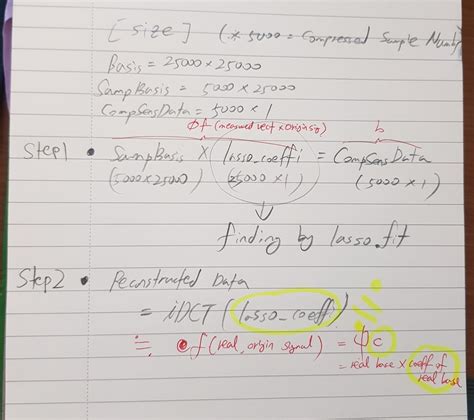 [size] (* 5000 = Compressed Sample Numb
Basis = 25000 × 25000
SampBasis = 5000 × 25000
CompSensData = 5000 × 1
Φf (measured vect × origin sig) b
Step1 • SampBasis × lasso_coeffi = CompSensData
(5000×25000) (25000 × 1) (5000 × 1)
↓
finding by lasso.fit
Step2 • Reconstructed Data
= iDCT (lasso_coeffi)
≒ f (real, origin signal) = ψc
= real base × coeff of
real base